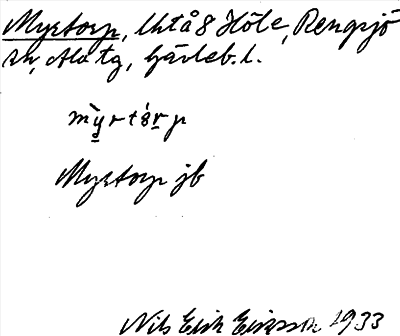 Myrtorp, lht å 8 Höle, Rengsjö
sn, Ala tg, Gävleb. l.
Myrtorp jb
Nils Erik Eriksson 1933